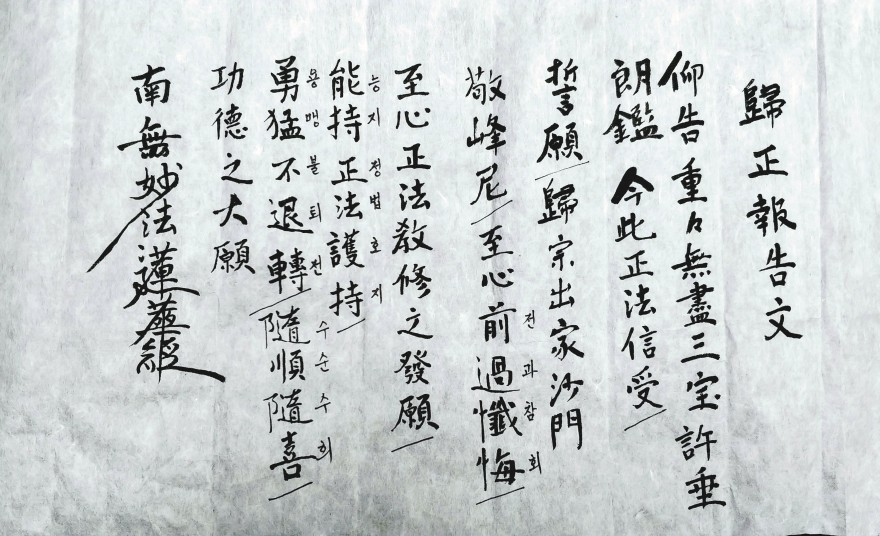 歸正報告文
仰告重々無盡三宝許垂
朗鑑 今此正法信受
誓言願 歸宗出家沙門
敬峰尼 至心前過懺悔
전과참회
至心正法教修之發願
能持正法護持
능지정법호지
勇猛不退轉 隨順隨喜
용맹불퇴전 수순수희
功德之大願
南無妙法蓮華経